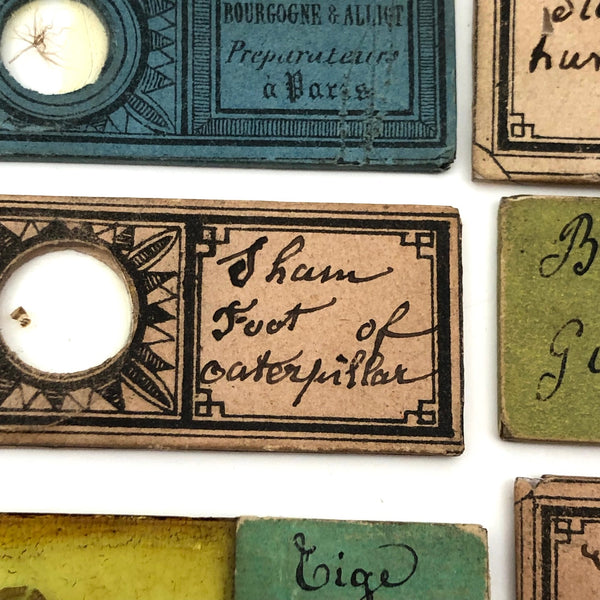 BOURGOGNE & ALLIOT
Préparateurs
à Paris
hum
Sham
Foot of
caterpillar
B
G
Tige